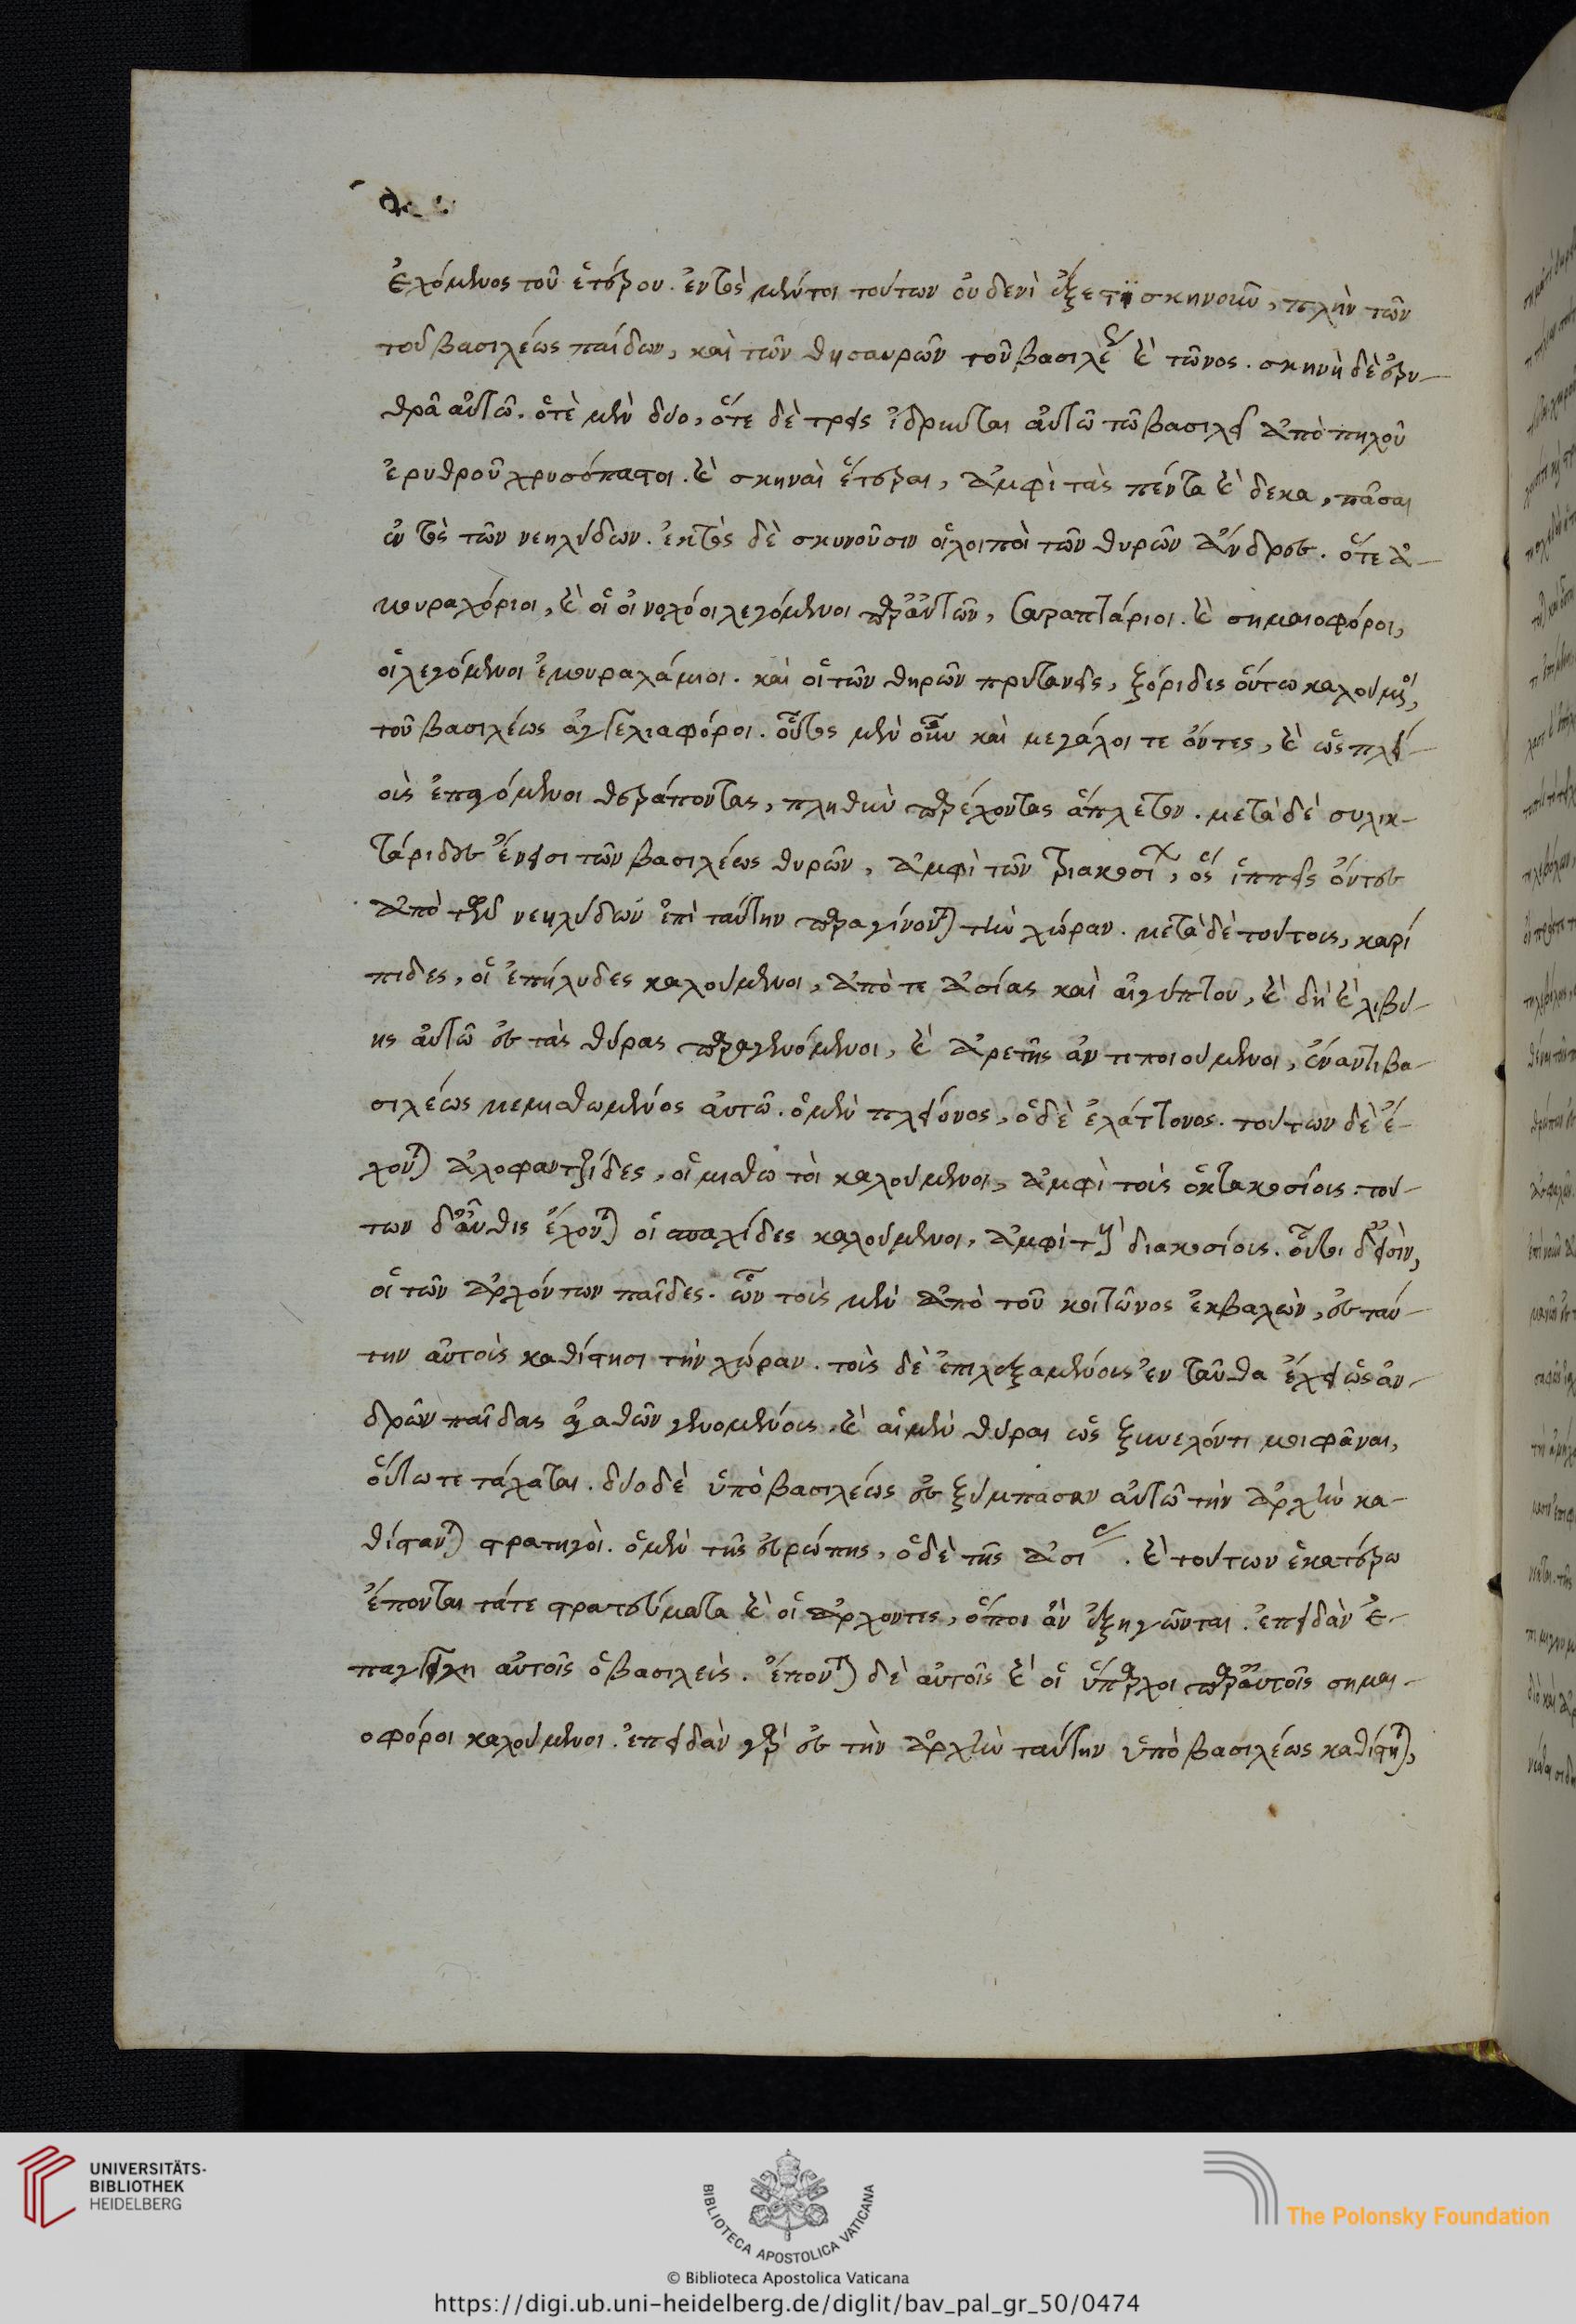 ἐχόμενος τοῦ ἑτέρου. ἐντὸς μέντοι τούτων οὐδενὶ ἔξεστι σκηνοῦν, πλὴν τῶν
τοῦ βασιλέως παίδων, καὶ τῶν θησαυρῶν τοῦ βασιλέως καὶ τῶνος. σκηνὴ δὲ ἐρυ-
θρᾶ αὐτῶ. ὁτὲ μὲν δύο, ὅτε δὲ τρεῖς ἵδρυνται αὐτῶ τῶ βασιλεῖ ἀπὸ πηλοῦ
ἐρυθροῦ χρυσόπαστοι. καὶ σκηναὶ ἕτεραι, ἀμφὶ τὰς πέντε καὶ δεκα, πᾶσαι
ἐντὸς τῶν νεηλύδων. ἐκτὸς δὲ σκυνοῦσιν οἱ λοιποὶ τῶν θυρῶν ἄνδρες. οἵτε ἀ-
μουραχόριοι, καὶ οἱ οἰνοχόοι λεγόμενοι παρ' αὐτῶν, σαραπτάριοι. καὶ σημαιοφόροι,
οἱ λεγόμενοι ἐμουραλάμιοι. καὶ οἱ τῶν θηρῶν πρυτανεῖς, ζόριδες οὕτω καλούμενοι,
τοῦ βασιλέως ἀγγελιαφόροι. οὗτος μὲν οὖν καὶ μεγάλοι τε ὄντες, καὶ ὡς πλεί-
οις ἐπαγόμενοι θεράποντας, πληθὺν παρέχοντας ἄπλετον. μετὰ δὲ συλικ-
τάριδες ἔνεισι τῶν βασιλέως θυρῶν, ἀμφὶ τῶν τριακοσίων, οἳ ἱππεῖς ὄντες
ἀπὸ τῶν νεηλύδων ἐπὶ ταύτην παραγίνονται τὴν χώραν. μετὰ δὲ τούτοις, καρί
πιδες, οἱ ἐπήλυδες καλούμενοι, ἀπό τε ἀσίας καὶ αἰγύπτου, καὶ δὴ καὶ λιβύ-
ης αὐτῶ ἐς τὰς θύρας παραγενόμενοι, καὶ ἀρετῆς ἀντιποιούμενοι, ἐναντι βα-
σιλέως μεμισθωμένος αὐτῶ. ὁ μὲν πλείονος, ὁ δὲ ἐλάττονος. τούτων δὲ ἔ-
χονται ἀλοφαντζίδες, οἱ μισθωτοὶ καλούμενοι, ἀμφὶ τοὺς ὀκτακοσίοις. τού-
των δ' αὖθις ἔχονται οἱ σπαχίδες καλούμενοι, ἀμφὶ τοὺς διακοσίοις. οὗτοι δ' εἰσὶν,
οἱ τῶν ἀρχόντων παῖδες. ὧν τοὺς μὲν ἀπὸ τοῦ κοιτῶνος ἐκβαλὼν, ἐς ταύ-
την αὐτοὺς καθίστησι τὴν χώραν. τοὺς δὲ ἐπιλεξαμένοις ἐνταῦθα ἔχει ὡς ἀν-
δρῶν παῖδας ἀγαθῶν γενομένοις. καὶ αἱ μὲν θύραι ὡς ξυνελόντι μοι φάναι,
οὕτω τετάχαται. δύο δὲ ὑπὸ βασιλέως ἐς ξύμπασαν αὐτῶ τὴν ἀρχὴν κα-
θίστανται στρατηγοὶ. ὁ μὲν τῆς εὐρώπης, ὁ δὲ τῆς ἀσίας. καὶ τούτων ἑκατέρω
ἕπονται τάτε στρατεύματα καὶ οἱ ἄρχοντες, ὅποι ἂν ἐξηγῶνται. ἐπειδὰν ἐ-
παγγείλη αὐτοῖς ὁ βασιλεὺς. ἕπονται δὲ αὐτοῖς καὶ οἱ ὕπαρχοι παρ' αὐτοῖς σημαι-
οφόροι καλούμενοι. ἐπειδὰν γὰρ ἐς τὴν ἀρχὴν ταύτην ὑπὸ βασιλέως καθίστηται,
UNIVERSITÄTS-
BIBLIOTHEK
HEIDELBERG
BIBLIOTECA APOSTOLICA VATICANA
The Polonsky Foundation
© Biblioteca Apostolica Vaticana
https://digi.ub.uni-heidelberg.de/diglit/bav_pal_gr_50/0474